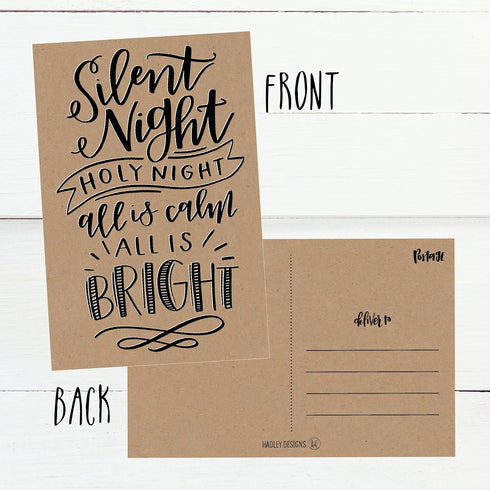 Silent
Night
HOLY NIGHT
all is calm
ALL IS
BRIGHT
FRONT
BACK
Postage
deliver to
HADLEY DESIGNS